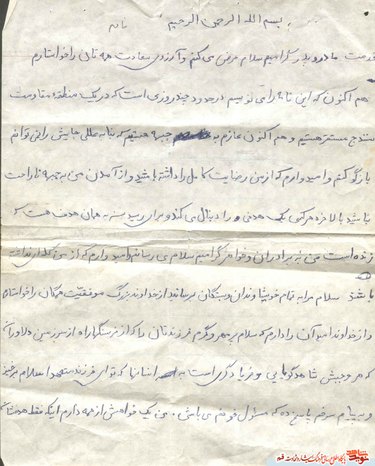 بسم الله الرحمن الرحیم
خدمت مادر و پدر گرامیم سلام عرض می کنم و آرزوی سعادت همه تان را خواستارم
هم اکنون که این نامه را می نویسم در حدود چند روزی است که در یک منطقه مقاومت
سنندج مستقر هستیم و هم اکنون عازم به جبهه هستیم که بنا به عللی جایش را نمی توانم
بازگو کنم و امیدوارم که از من رضایت کامل را داشته باشید و از آمدن من به جبهه ناراحت
نباشید بالاخره هر کسی یک هدفی را دنبال می کند و برای رسیدن به همان هدف هست که
زنده است من به برادران و خواهر گرامیم سلام می رسانم و امیدوارم که از من
باشد سلام مرا به تمام خویشاوندان و بستگان برسانید از خداوند بزرگ موفقیت همگان را خواستارم
و از خداوند امید آن را دارم که سلام پر مهر و گرم فرزندتان را که از فرسنگها راه از سرزمین دلاوران
که هر وجبش شاهد گویایی و فریادگری است به انسانها که توای فرزند متعهد اسلام برخیز
و به پیام سرخم پاسخ ده که مسئول خونم می باش. من یک خواهش از همه دارم اینکه فقط